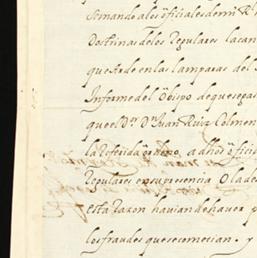 semando a los offiçiales de mi R
Doctrinas de los Regulares la can
que arde en las lamparas del S
Informe del Obispo de que se pas
que el Dr. D. Juan Ruiz Colmen
la Referida orden, a dhos offiçi
Regulares en su presencia O la de
esta razon havian de haver p
los fraudes que se cometian. y